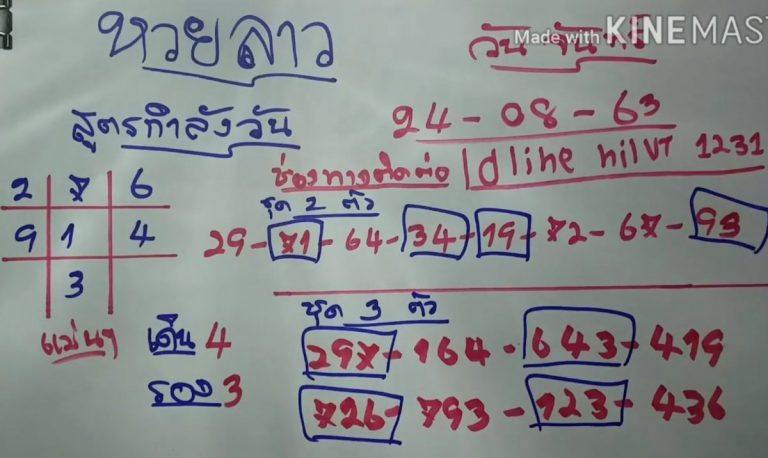 หวยลาว
วันจันทร์
Made with KINEMAS
สูตรกำลังวัน
24-08-63
ช่องทางติดต่อ Id line nilvt 1231
2 7 6
9 1 4
3
ชุด 2 ตัว
29-71-64-34-19-72-67-93
แม่นๆ เด่น 4
รอง 3
ชุด 3 ตัว
297-164-643-419
726-793-123-436